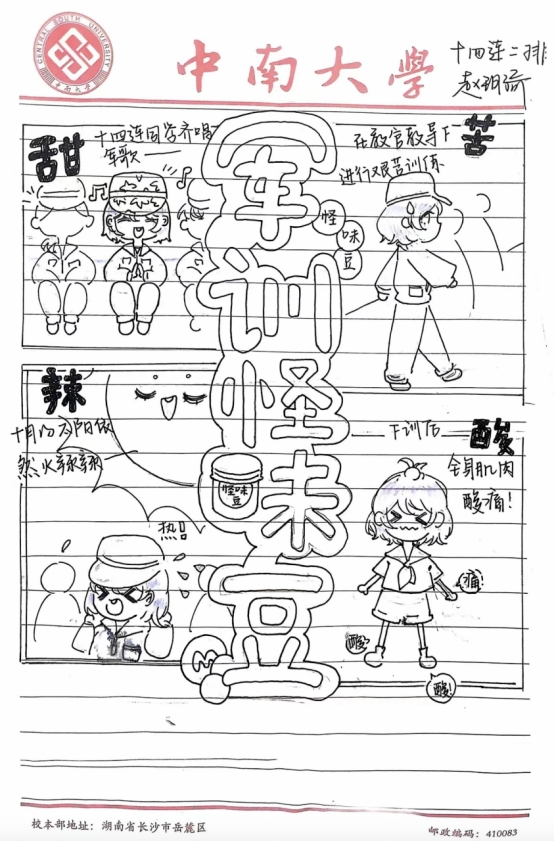 CENTRAL SOUTH UNIVERSITY
中南大学
中南大學
十四连二排
甜
十四连同学齐唱
军歌——
在教官教导下
进行艰苦训练
苦
军训怪味豆
怪
味
豆
辣
十月份太阳依
然火辣辣
热!
怪味
豆
M
下训后
酸
全身肌肉
酸痛!
痛!
酸!
酸!
校本部地址：湖南省长沙市岳麓区
邮政编码：410083